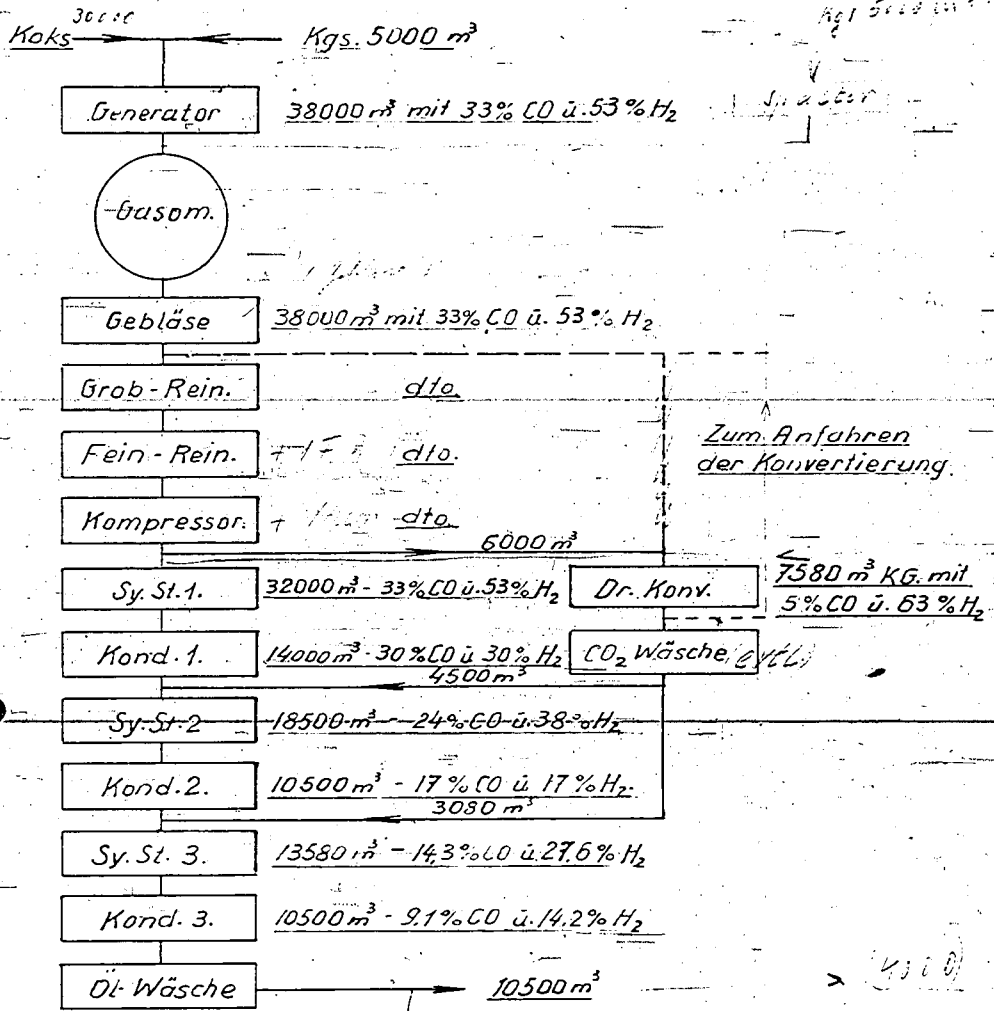 Koks
Kgs. 5000 m³
Generator
38000 m³ mit 33% CO ü. 53% H₂
Gasom.
Gebläse
38000 m³ mit 33% CO ü. 53% H₂
Grob-Rein.
dto.
Fein-Rein.
dto.
Zum Anfahren
der Konvertierung.
Kompressor.
dto.
6000 m³
Sy. St. 1.
32000 m³ - 33% CO ü. 53% H₂
Dr. Konv.
7580 m³ KG. mit
5% CO ü. 63% H₂
Kond. 1.
14000 m³ - 30% CO ü 30% H₂
CO₂ Wäsche
4500 m³
Sy. St. 2
18500 m³ - 24% CO ü. 38% H₂
Kond. 2.
10500 m³ - 17% CO ü 17% H₂.
3080 m³
Sy. St. 3.
13580 m³ - 14,3% CO ü. 27,6% H₂
Kond. 3.
10500 m³ - 9.1% CO ü. 14,2% H₂
Öl-Wäsche
10500 m³